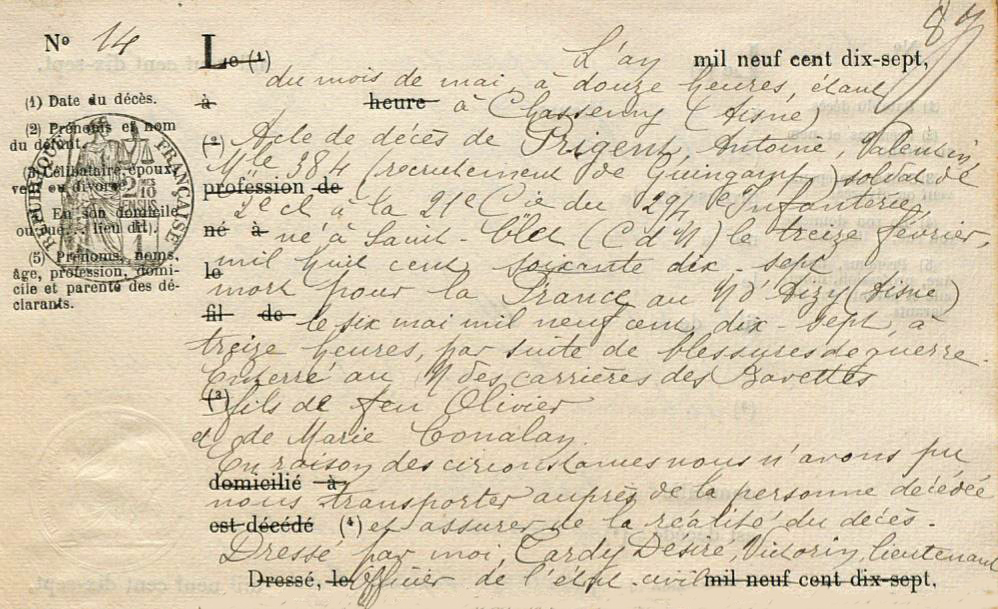 87
N° 14
Le (1) L'an mil neuf cent dix-sept,
du mois de mai, à douze heures, étant
à heure à Chassemy (Aisne)
(2) Acte de décès de Prigent, Antoine, Valentin,
Mle 384 (recrutement de Guingamp) soldat de
profession de
2e cl à la 21e Cie du Infanterie,
né à né à Saint- (C d N) le treize février,
mil huit cent soixante dix-sept
le
mort pour la France au N d'Aizy (Aisne)
fil de le six mai mil neuf cent dix-sept, à
treize heures, par suite de blessures de guerre.
Enterré au N des carrières des Bovettes
(3) fils de feu Olivier
et de Marie
En raison des circonstances nous n'avons pu
domicilié à
nous transporter auprès de la personne décédée
est décédé (4) et assurer de la réalité du décès.
Dressé par moi, Cardy Désiré, Victorin, lieutenant
Dressé, le Officier de l'état-civil mil neuf cent dix-sept,
(1) Date du décès.
(2) Prénoms et nom
du défunt.
(3) Célibataire, époux,
veuf ou divorcé.
En son domicile
ou rue... lieu dit).
(5) Prénoms, noms,
âge, profession, domi-
cile et parenté des dé-
clarants.
RÉPUBLIQUE FRANÇAISE